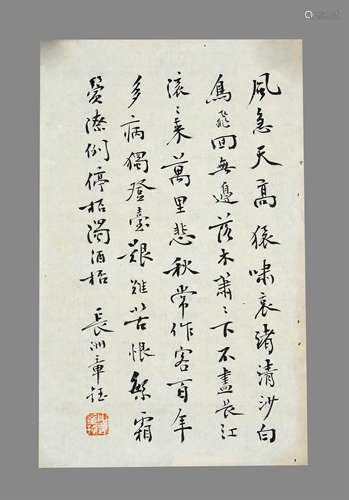 風急天高猿嘯哀渚清沙白
鳥飛回無邊落木蕭〻下不盡長江
滾〻來萬里悲秋常作客百年
多病獨登臺艱難苦恨繁霜
鬢潦倒停桮濁酒桮 長洲章鈺